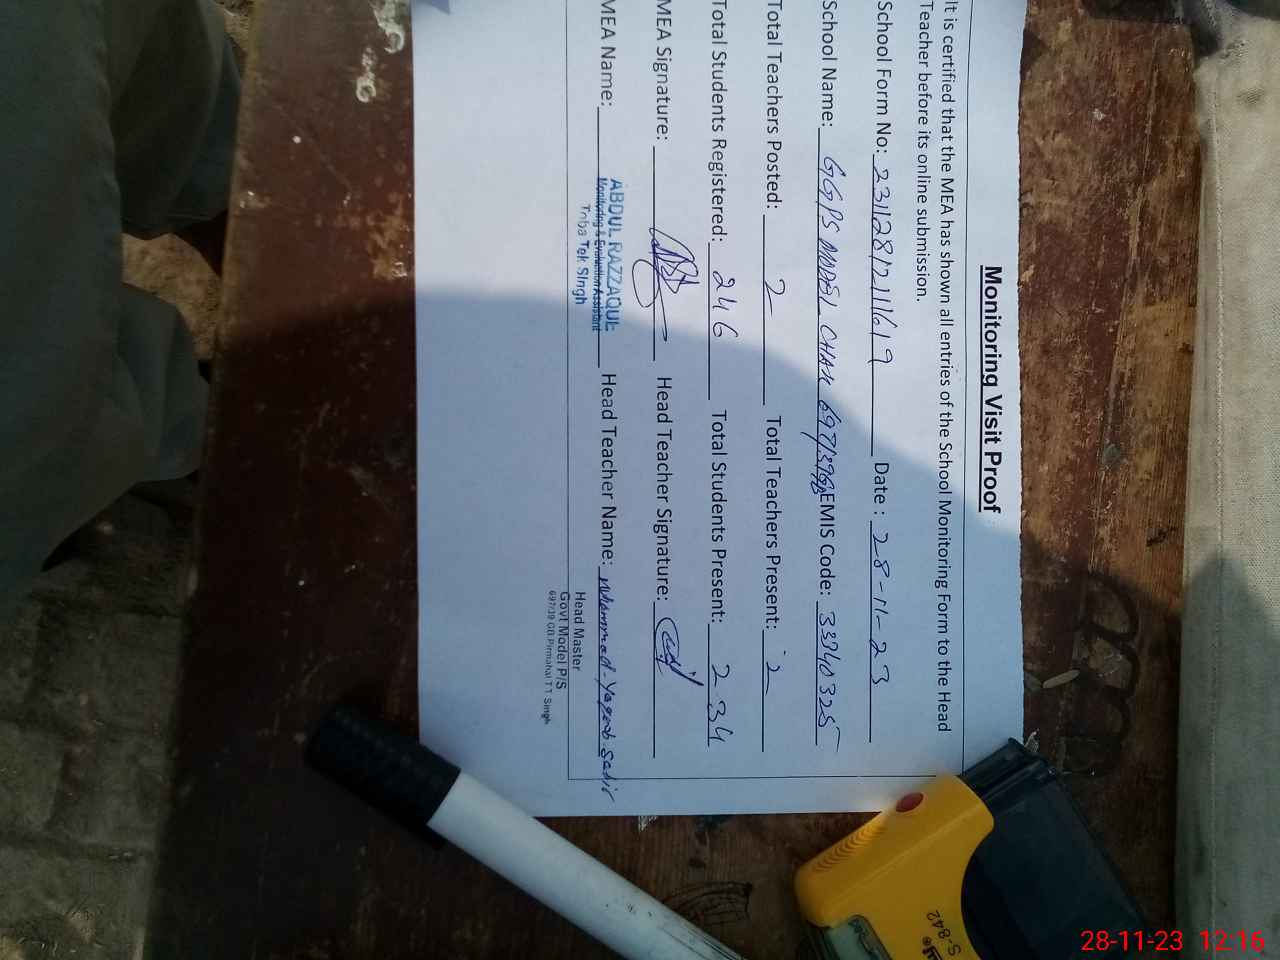 Monitoring Visit Proof
It is certified that the MEA has shown all entries of the School Monitoring Form to the Head
Teacher before its online submission.
School Form No: 23112812111619 Date : 28-11-23
School Name: GGPS MODEL CHAK 697/39GB EMIS Code: 33340325
Total Teachers Posted: 2 Total Teachers Present: 2
Total Students Registered: 246 Total Students Present: 234
MEA Signature: Head Teacher Signature:
MEA Name: ABDUL RAZZAQUE Head Teacher Name: Muhammad Yaqoob Sabir
Monitoring & Evaluation Assistant
Toba Tek Singh
Head Master
Govt Model P/S
697/39 GB Pirmahal T T Singh
S-842
28-11-23 12:16